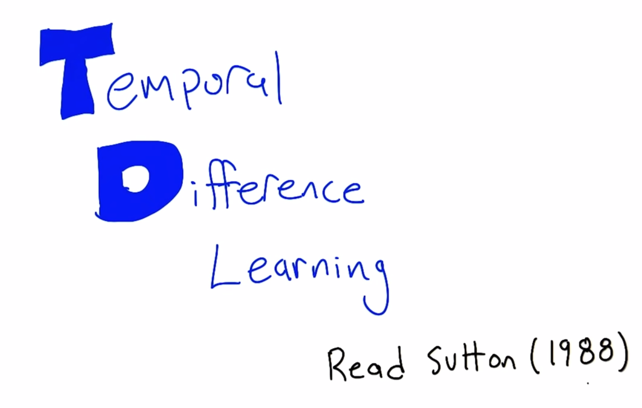 Temporal
Difference
Learning
Read Sutton (1988)